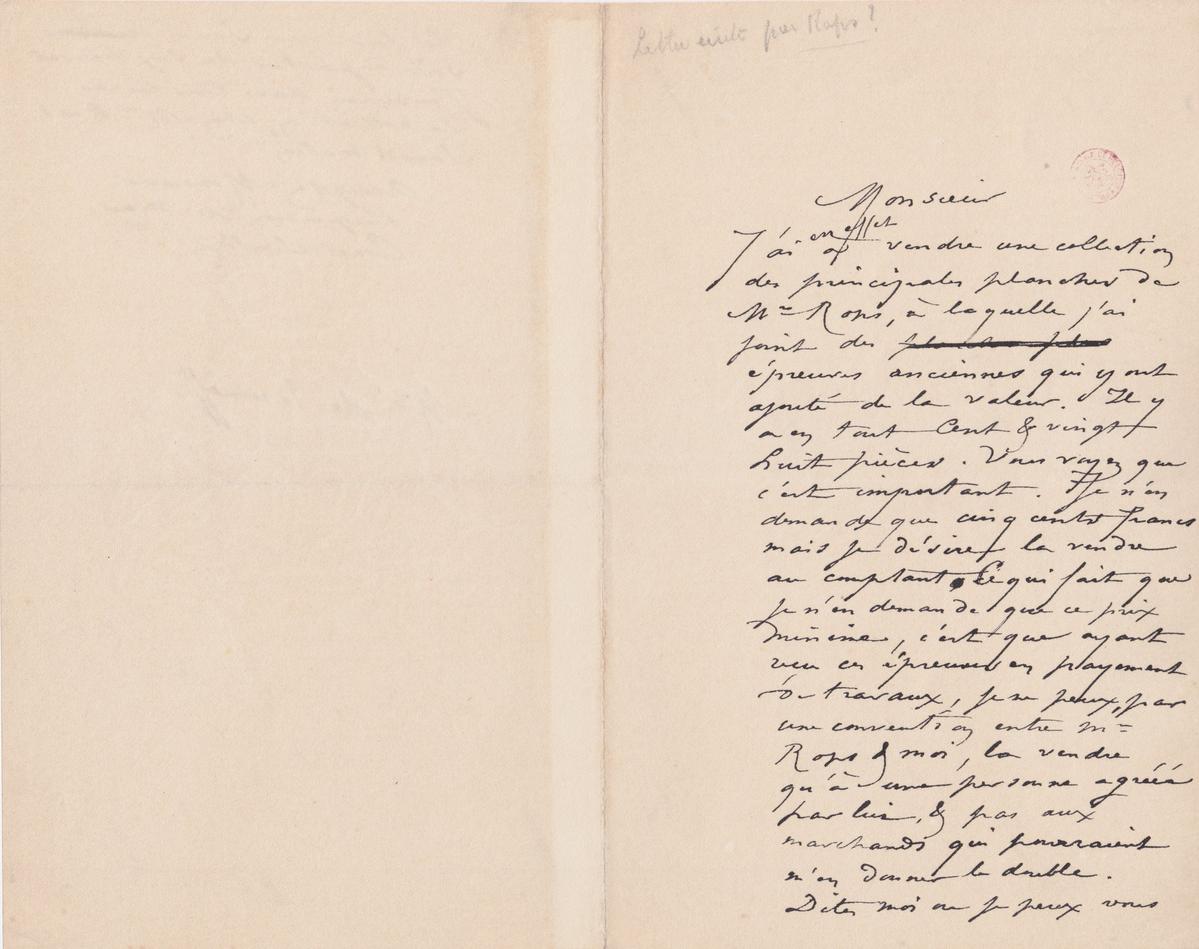 Lettre écrite par Rops?
Monsieur
J'ai en effet à vendre une collection
des principales planches de
Mr Rops, à laquelle j'ai
joint des
épreuves anciennes qui y ont
ajouté de la valeur. Il y
a en tout Cent & vingt
huit pièces. Vous voyez que
c'est important. Je n'en
demande que cinq cents francs
mais je désire la vendre
au comptant, Ce qui fait que
je n'en demande que ce prix
minime, c'est que ayant
reçu ces épreuves en payement
de travaux, je ne peux, par
une convention entre Mr
Rops & moi, la vendre
qu'à une personne agréée
par lui, & pas aux
marchands qui pourraient
m'en donner le double.
Dites moi ou je peux vous